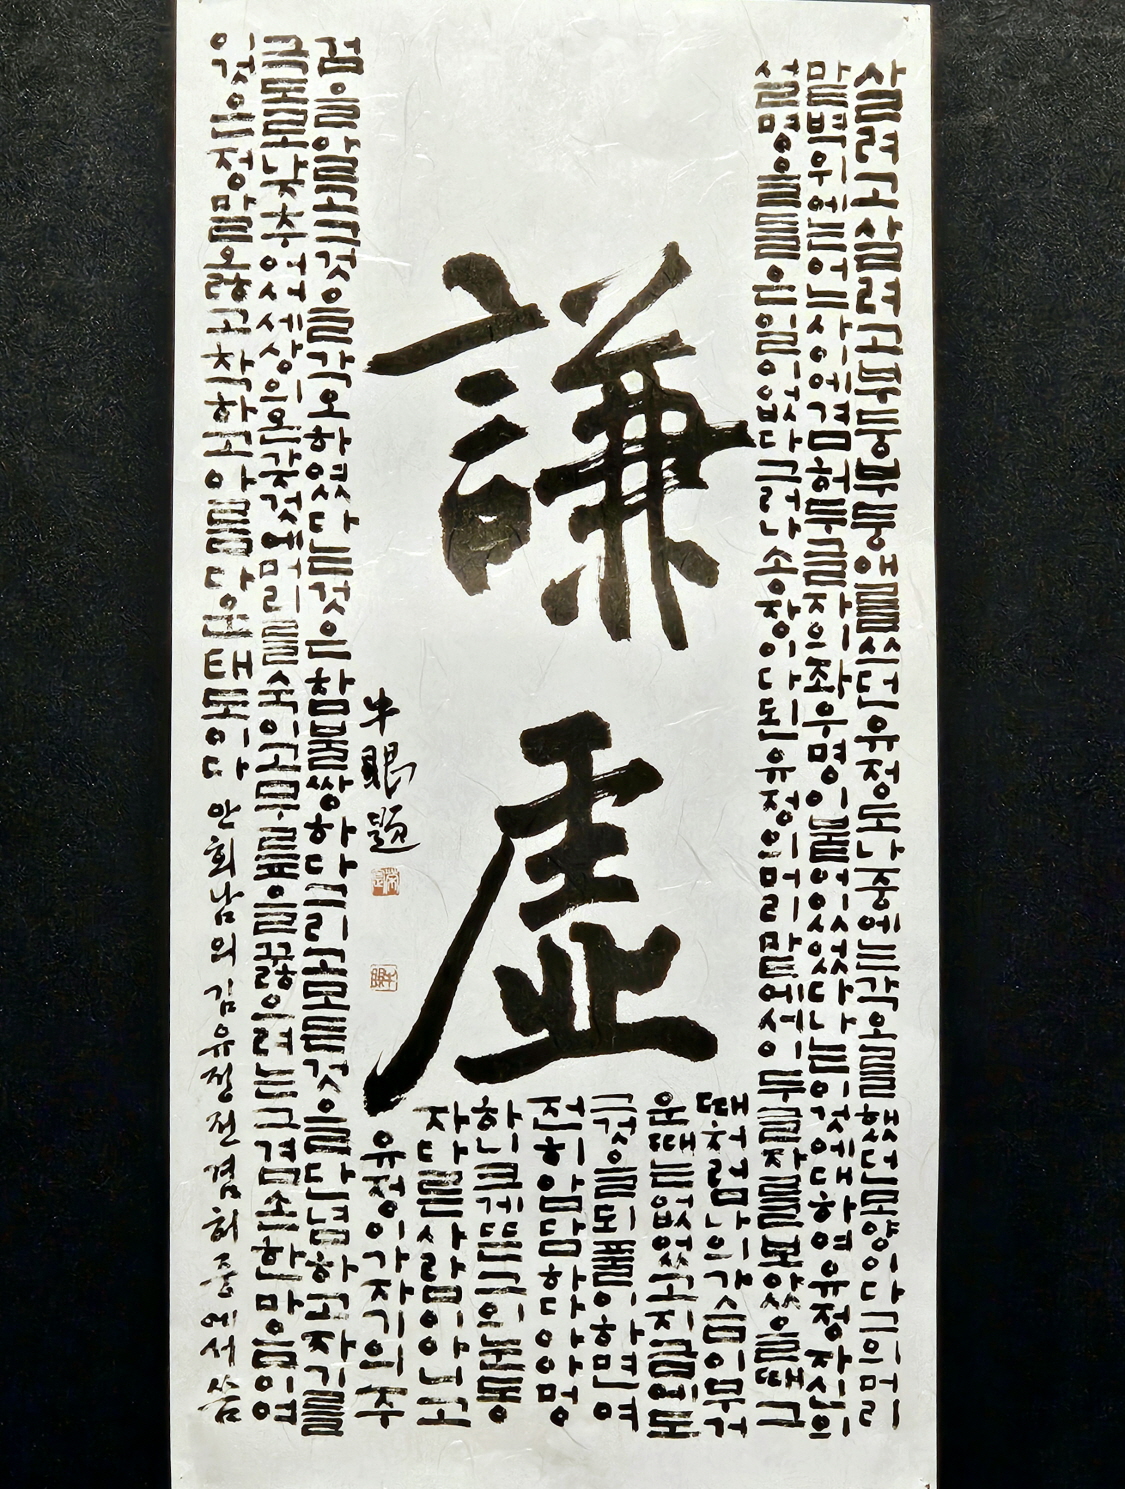 살려고살려고부둥부둥애를쓰던유정도나중에는각오를했던모양이다그의머리
맡벽위에는어느사이에겸허두글자의좌우명이붙어있었다나는이에대하여유정자신의
설명을들은일이없다그러나송장이다된유정의머리맡에서이두글자를보았을때그
때처럼나의가슴이무거
운때는없었고지금에도
그것을되풀이하면여
전히암담하다이멍
하니크게뜬그의눈동
자다른사람이아니고
유정이가자기의주
검을알고그것을각오하였다는것은참불쌍하다그리고모든것을단념하고자기를
그토록낮추어서세상의온갖것에머리를숙이고무릎을꿇으려는그겸손한마음이여
이것은정말옳고착하고아름다운태도이다 안회남의 김유정전 겸허 중에서 씀
謙虛
牛眼題